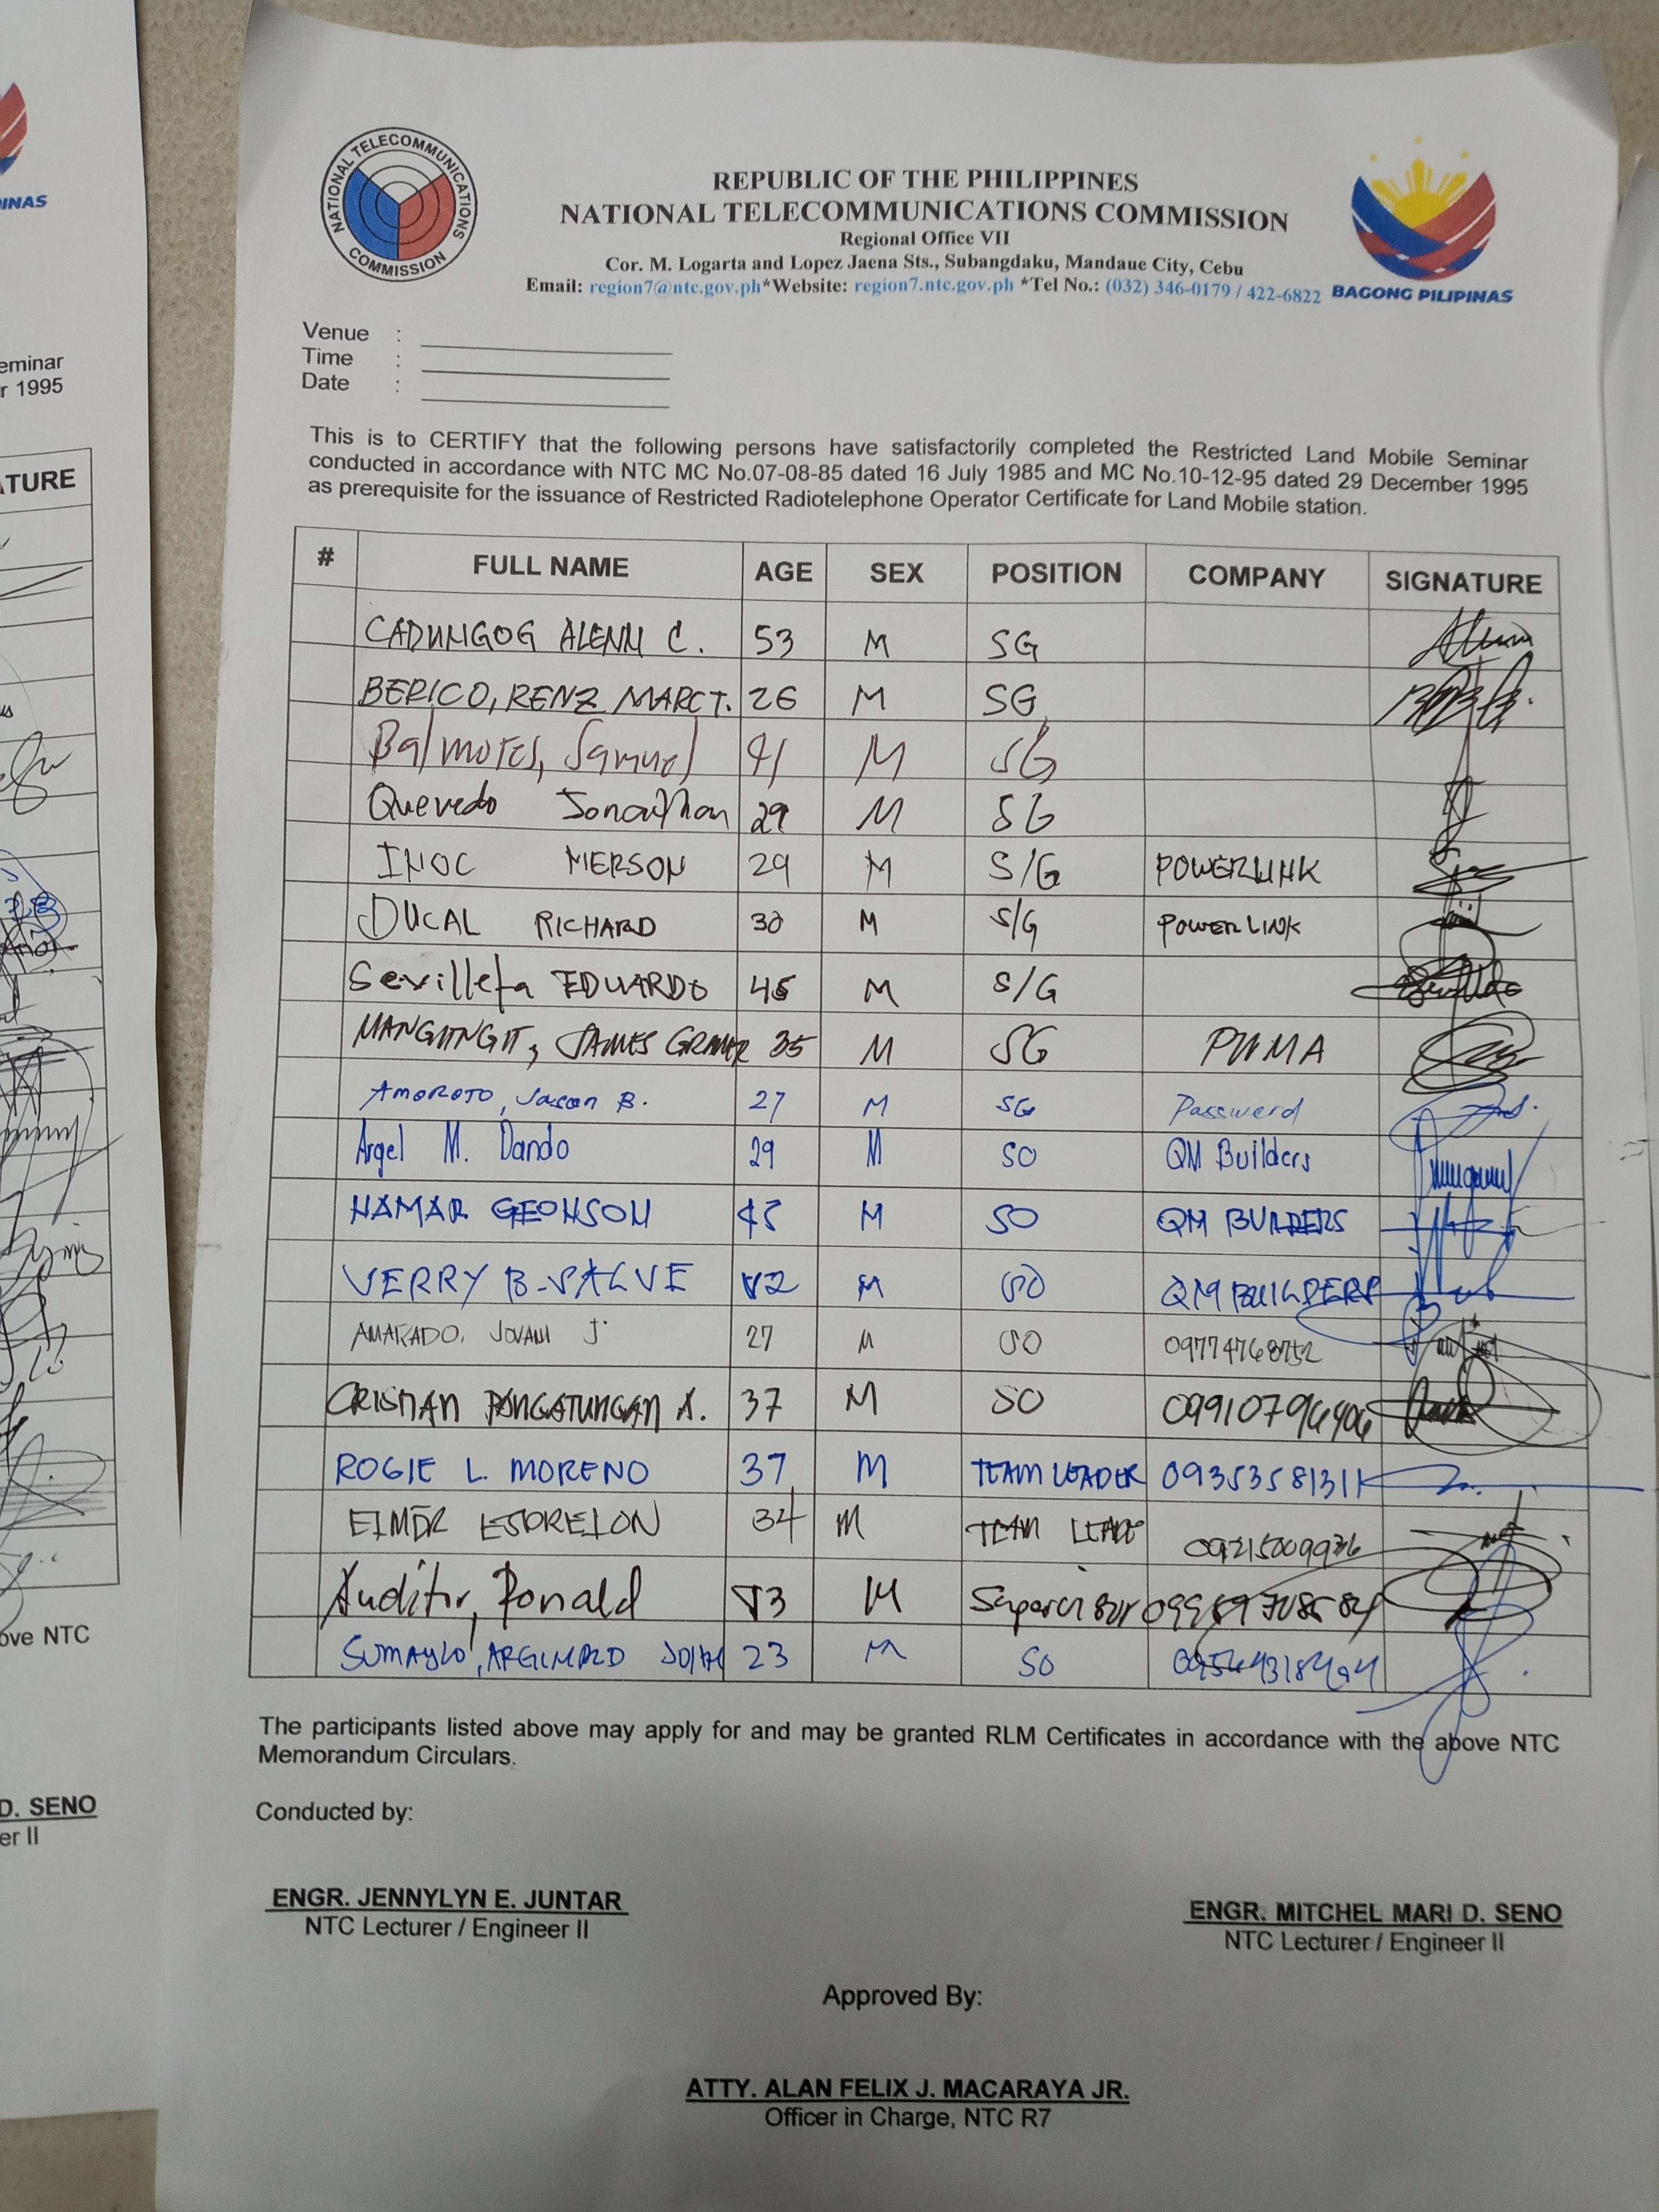 INAS
eminar
r 1995
ATURE
ove NTC
D. SENO
er II
NATIONAL TELECOMMUNICATIONS COMMISSION
REPUBLIC OF THE PHILIPPINES
NATIONAL TELECOMMUNICATIONS COMMISSION
Regional Office VII
Cor. M. Logarta and Lopez Jaena Sts., Subangdaku, Mandaue City, Cebu
Email: region7@ntc.gov.ph*Website: region7.ntc.gov.ph *Tel No.: (032) 346-0179 / 422-6822
BAGONG PILIPINAS
Venue :
Time :
Date :
This is to CERTIFY that the following persons have satisfactorily completed the Restricted Land Mobile Seminar
conducted in accordance with NTC MC No.07-08-85 dated 16 July 1985 and MC No.10-12-95 dated 29 December 1995
as prerequisite for the issuance of Restricted Radiotelephone Operator Certificate for Land Mobile station.
# FULL NAME AGE SEX POSITION COMPANY SIGNATURE
CADUNGOG ALENN C. 53 M SG
BERICO, RENZ MARC T. 26 M SG
Balmores, Samuel 41 M SG
Quevedo Jonathan 29 M SG
INOC MERSON 29 M S/G POWERLINK
DUCAL RICHARD 30 M S/G POWERLINK
Sevilleta EDUARDO 45 M S/G
JAMES 35 M SG PWMA
AMOROTO, Jason B. 27 M SG Password
Argel M. Dando 29 M SO QM Builders
HAMAR GEOHSON M SO QM BUILDERS
VERRY B. SALVE M SO QM BUILDERS
JOVANI J. 27 M SO
CRISTIAN A. 37 M SO
ROGIE L. MORENO 37 M TEAM LEADER
34 M TEAM
Ronald M
SUMAYLO, 23 M SO
The participants listed above may apply for and may be granted RLM Certificates in accordance with the above NTC
Memorandum Circulars.
Conducted by:
ENGR. JENNYLYN E. JUNTAR
NTC Lecturer / Engineer II
ENGR. MITCHEL MARI D. SENO
NTC Lecturer / Engineer II
Approved By:
ATTY. ALAN FELIX J. MACARAYA JR.
Officer in Charge, NTC R7